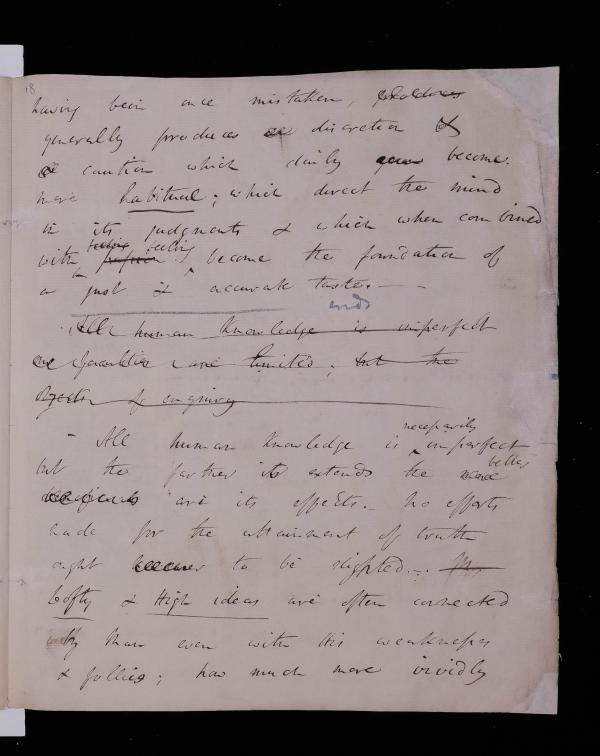 18
having been once mistaken,
generally produces discretion &
caution which daily become
more habitual; which direct the mind
in its judgments & which when combined
feeling feeling
with become the foundation of
a just & accurate taste. —
ends
All human knowledge is imperfect
our faculties are limited; but the
objects of enquiry
— All human knowledge is necessarily imperfect
but the farther it extends the better
are its effects. No efforts
made for the attainment of truth
ought to be slighted. —
Lofty & High ideas are often connected
by Man even with his weaknesses
& follies; how much more vividly